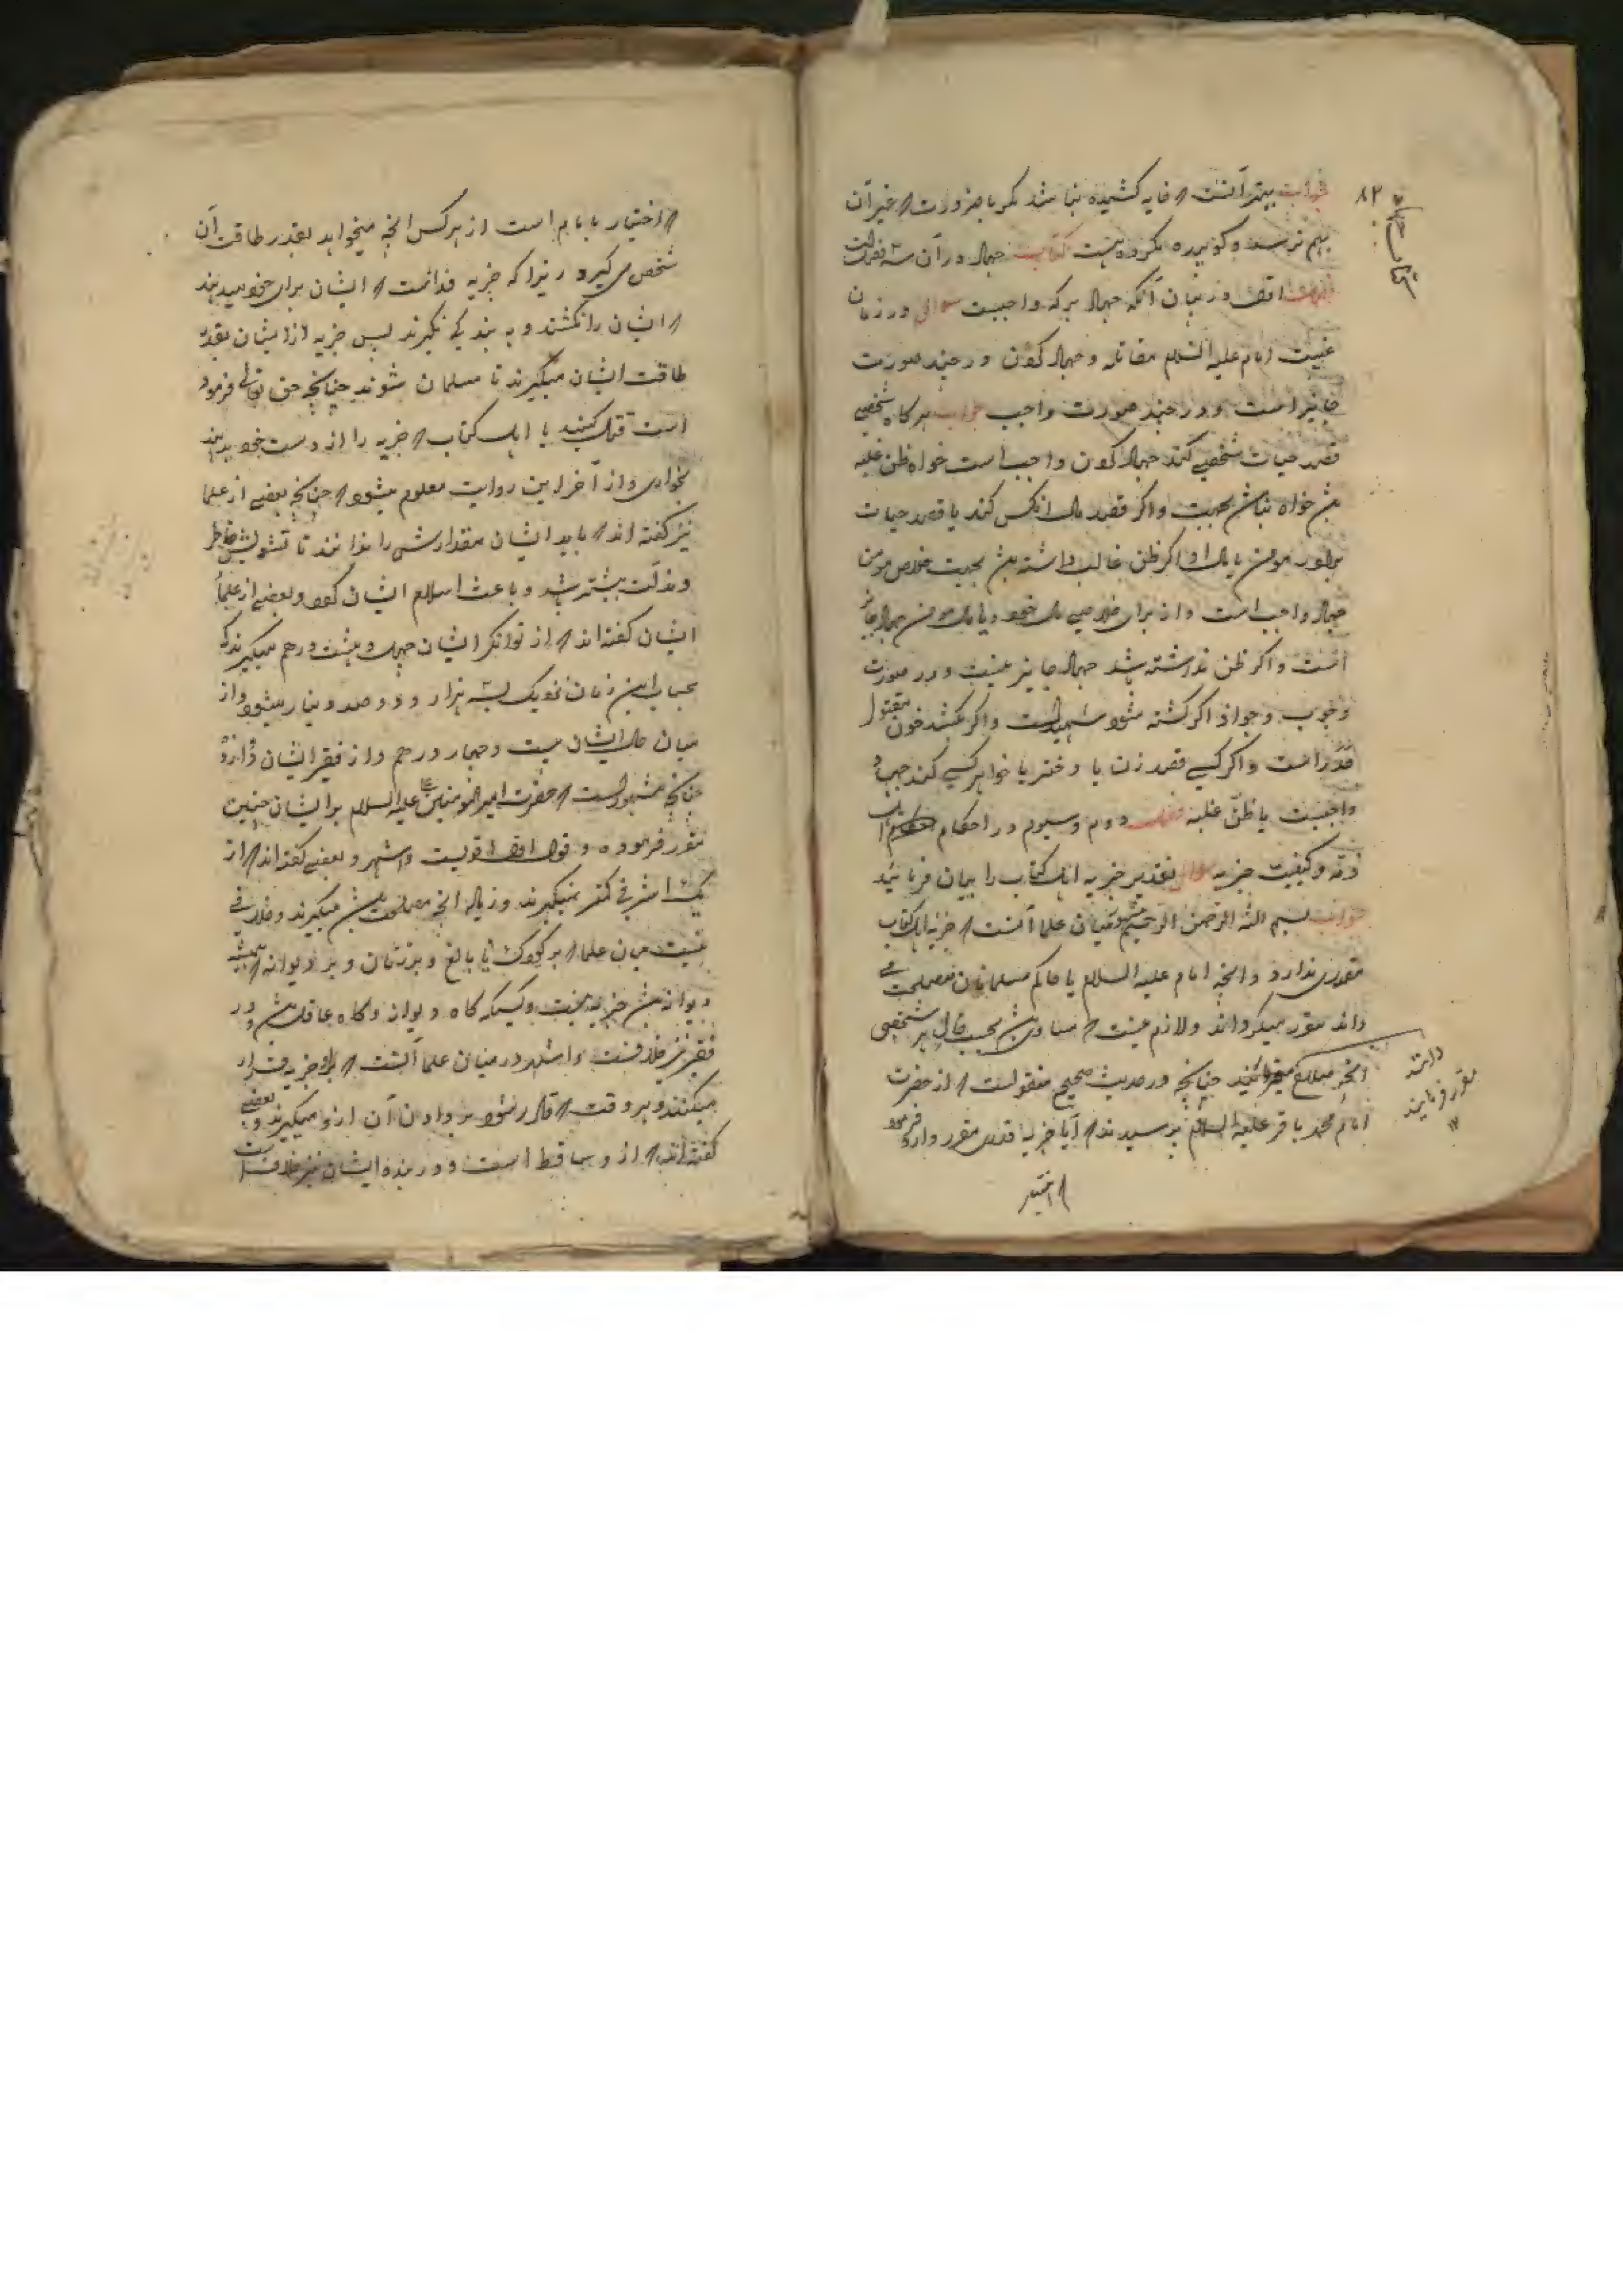 ۸۲
جواب بهتر آنست که خایه کشیده نباشد مگر با ضرورت که غیر آن
بهم نرسد و کوبیده مکروه هست کتاب جهاد و در آن سه فصلست
فصل اول در بیان آنکه جهاد بر که واجبست سوال در زمان
غیبت امام علیه السلام مقاتله و جهاد کردن در چند صورت
جایز است و در چند صورت واجب جواب هرگاه شخصی
قصد حیات شخصی کند جهاد کردن واجب است خواه ظن غلبه
باشد خواه نباشد و اگر قصد مال آنکس کند یا قصد حیات
برادر مومن یا مال او اگر ظن غالب داشته باشد بجهت خلاص مومن
جهاد واجب است و از برای خلاصی مال خود و یا مال مومن جهاد جایز
است و اگر ظن نداشته باشد جهاد جایز نیست و در صورت
وجوب و جواز اگر کشته شود شهید است و اگر بکشد خون مقتول
هدر است و اگر کسی قصد زن یا دختر یا خواهر کسی کند جهاد
واجبست با ظن غلبه فصل دوم و سیوم در احکام اهل
ذمه و کیفیت جزیه سوال تقدیر جزیه اهل کتاب را بیان فرمائید
جواب بسم الله الرحمن الرحیم مشهور میان علما آنست که جزیه اهل کتاب
مقدری ندارد و آنچه امام علیه السلام یا حاکم مسلمانان مصلحت
داند مقرر میگرداند و لازم نیست که مساوی باشد بحسب حال هر شخصی
آنچه صلاح میدانند چنانچه در حدیث صحیح منقولست که از حضرت
امام محمد باقر علیه السلام پرسیدند که آیا جزیه قدری مقرر دارد فرمود
دانند
مقرر فرمایند
که اختیار
که اختیار با امام است از هر کس آنچه میخواهد بقدر طاقت آن
شخص می گیرد زیرا که جزیه فدائست که ایشان برای خود میدهند
که ایشان را نکشند و به بندگی نگیرند پس جزیه از ایشان بقدر
طاقت ایشان میگیرند تا مسلمان شوند چنانچه حق تعالی فرموده
است قتال کنید با اهل کتاب که جزیه را از دست خود بدهند
بخواری و از آخر این روایت معلوم میشود که چنانچه بعضی از علما
نیز گفته اند که باید ایشان مقدارش را ندانند تا تشویش خاطر
و مذلت بیشتر باشد و باعث اسلام ایشان گردد و بعضی از علما
ایشان گفته اند که از توانگر ایشان چهل و هشت درهم میگیرند که
بحساب این زمان نزدیک بسه هزار و دو صد دینار میشود و از
میان حال ایشان بیست و چهار درهم و از فقیر ایشان دوازده
چنانچه مشهور است که حضرت امیرالمومنین علیه السلام بر ایشان چنین
مقرر فرموده و قول اول اقویست و اشهر و بعضی گفته اند که از
یک اشرفی کمتر نمیگیرند و زیاده آنچه مصلحت باشد میگیرند و خلافی
نیست میان علما که بر کودک نابالغ و بر زنان و بر دیوانه که همیشه
دیوانه باشد جزیه نیست و کسیکه گاه دیوانه و گاه عاقل باشد و در
فقیر نیز خلافست و اشهر در میان علما آنست که بر او جزیه قرار
میکنند و هر وقت که قادر شود بر دادن آن از او میگیرند و بعضی
گفته اند که از او ساقط است و در بنده ایشان نیز خلافست